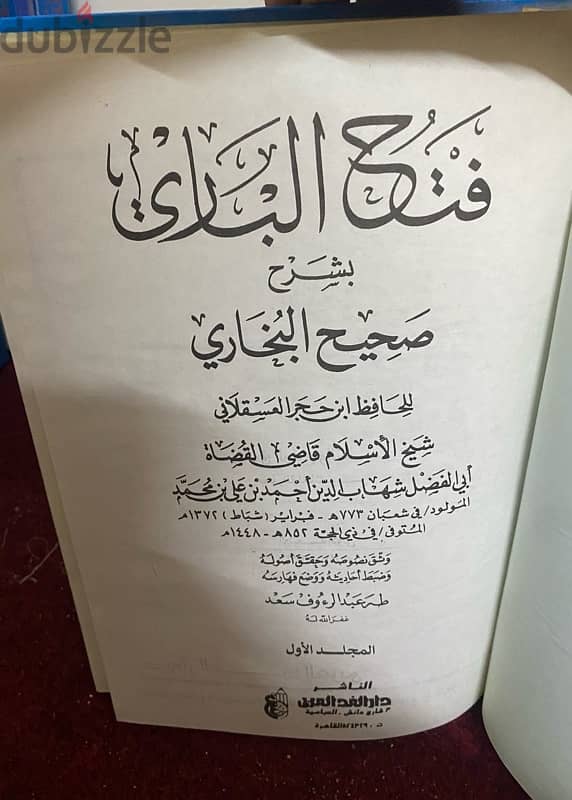 dubizzle
فتح الباري
بشرح
صحيح البخاري
للحافظ ابن حجر العسقلاني
شيخ الإسلام قاضي القضاة
أبي الفضل شهاب الدين أحمد بن علي بن محمد
المولود/ في شعبان ٧٧٣هـ - فبراير (شباط) ١٣٧٢م
المتوفى/ في ذي الحجة ٨٥٢هـ - ١٤٤٨م
وثق نصوصه وحقق أصوله
وضبط أحاديثه ووضع فهارسه
طه عبد الرءوف سعد
غفر الله له
المجلد الأول
الناشر
دار الغد العربي
٣ شارع دانش . العباسية
القاهرة